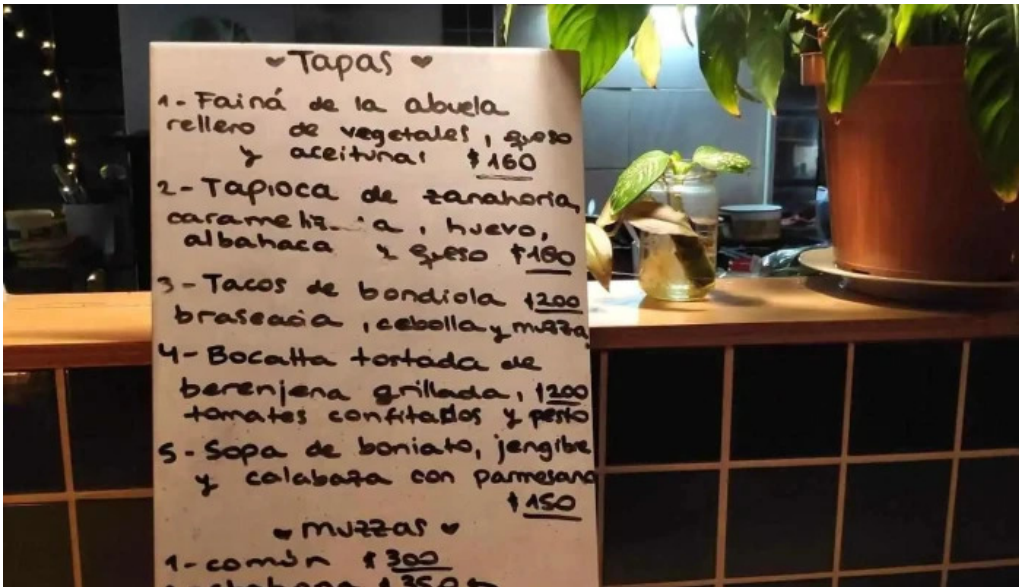 Tapas
1- Fainá de la abuela
rellero de vegetales, queso
y aceitunas $160
2- Tapioca de zanahoria,
huevo,
albahaca y queso $160
3- Tacos de bondiola $200
braseada, cebolla y muzza
4- Bocatta tostada de
berenjena grillada, $200
tomates confitados y pesto
5- Sopa de boniato, jengibre
y calabaza con parmesano
$150
muzzas
1- común $300
$350